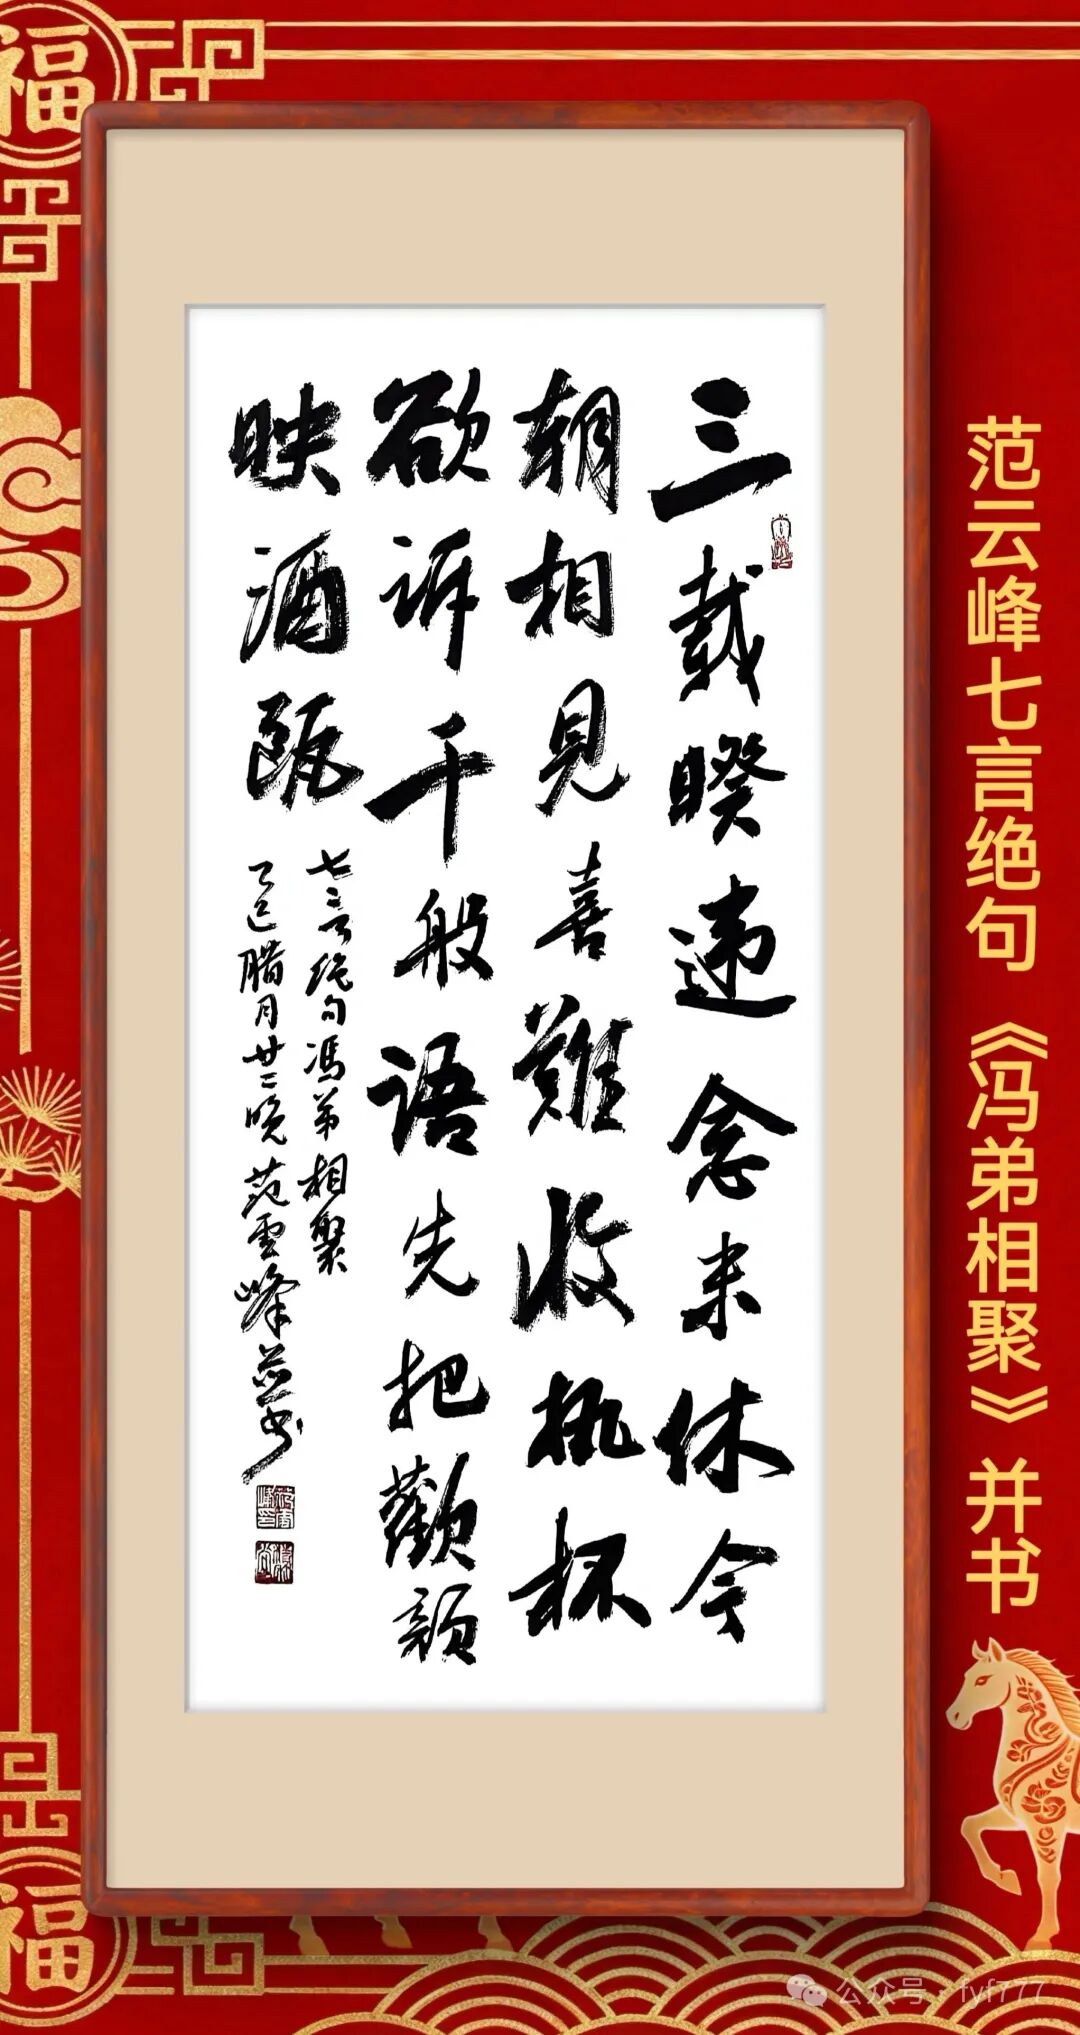 三载暌违念未休今
朝相见喜難收执杯
欲诉千般语先把歡颜
映酒瓯
七言绝句冯弟相聚
乙巳腊月廿二晚范雲峰并书
范云峰七言绝句《冯弟相聚》并书
福
福
公众号·fyf777